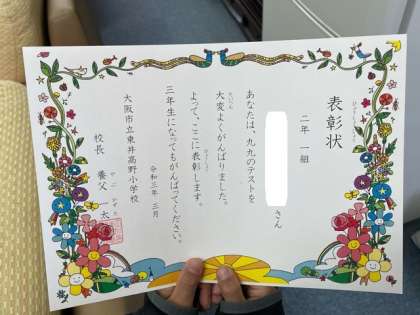 表彰状
二年 一組
さん
あなたは、九九のテストを
大変よくがんばりました。
よって、ここに表彰します。
三年生になってもがんばってください。
令和三年 三月
大阪市立東井高野小学校
校長 養父 一太